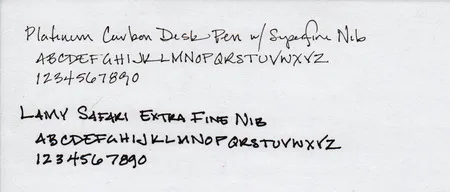 Platinum Carbon Desk Pen w/ Superfine Nib
ABCDEFGHIJKLMNOPQRSTUVWXYZ
1234567890
LAMY SAFARI EXTRA FINE NIB
ABCDEFGHIJKLMNOPQRSTUVWXYZ
1234567890